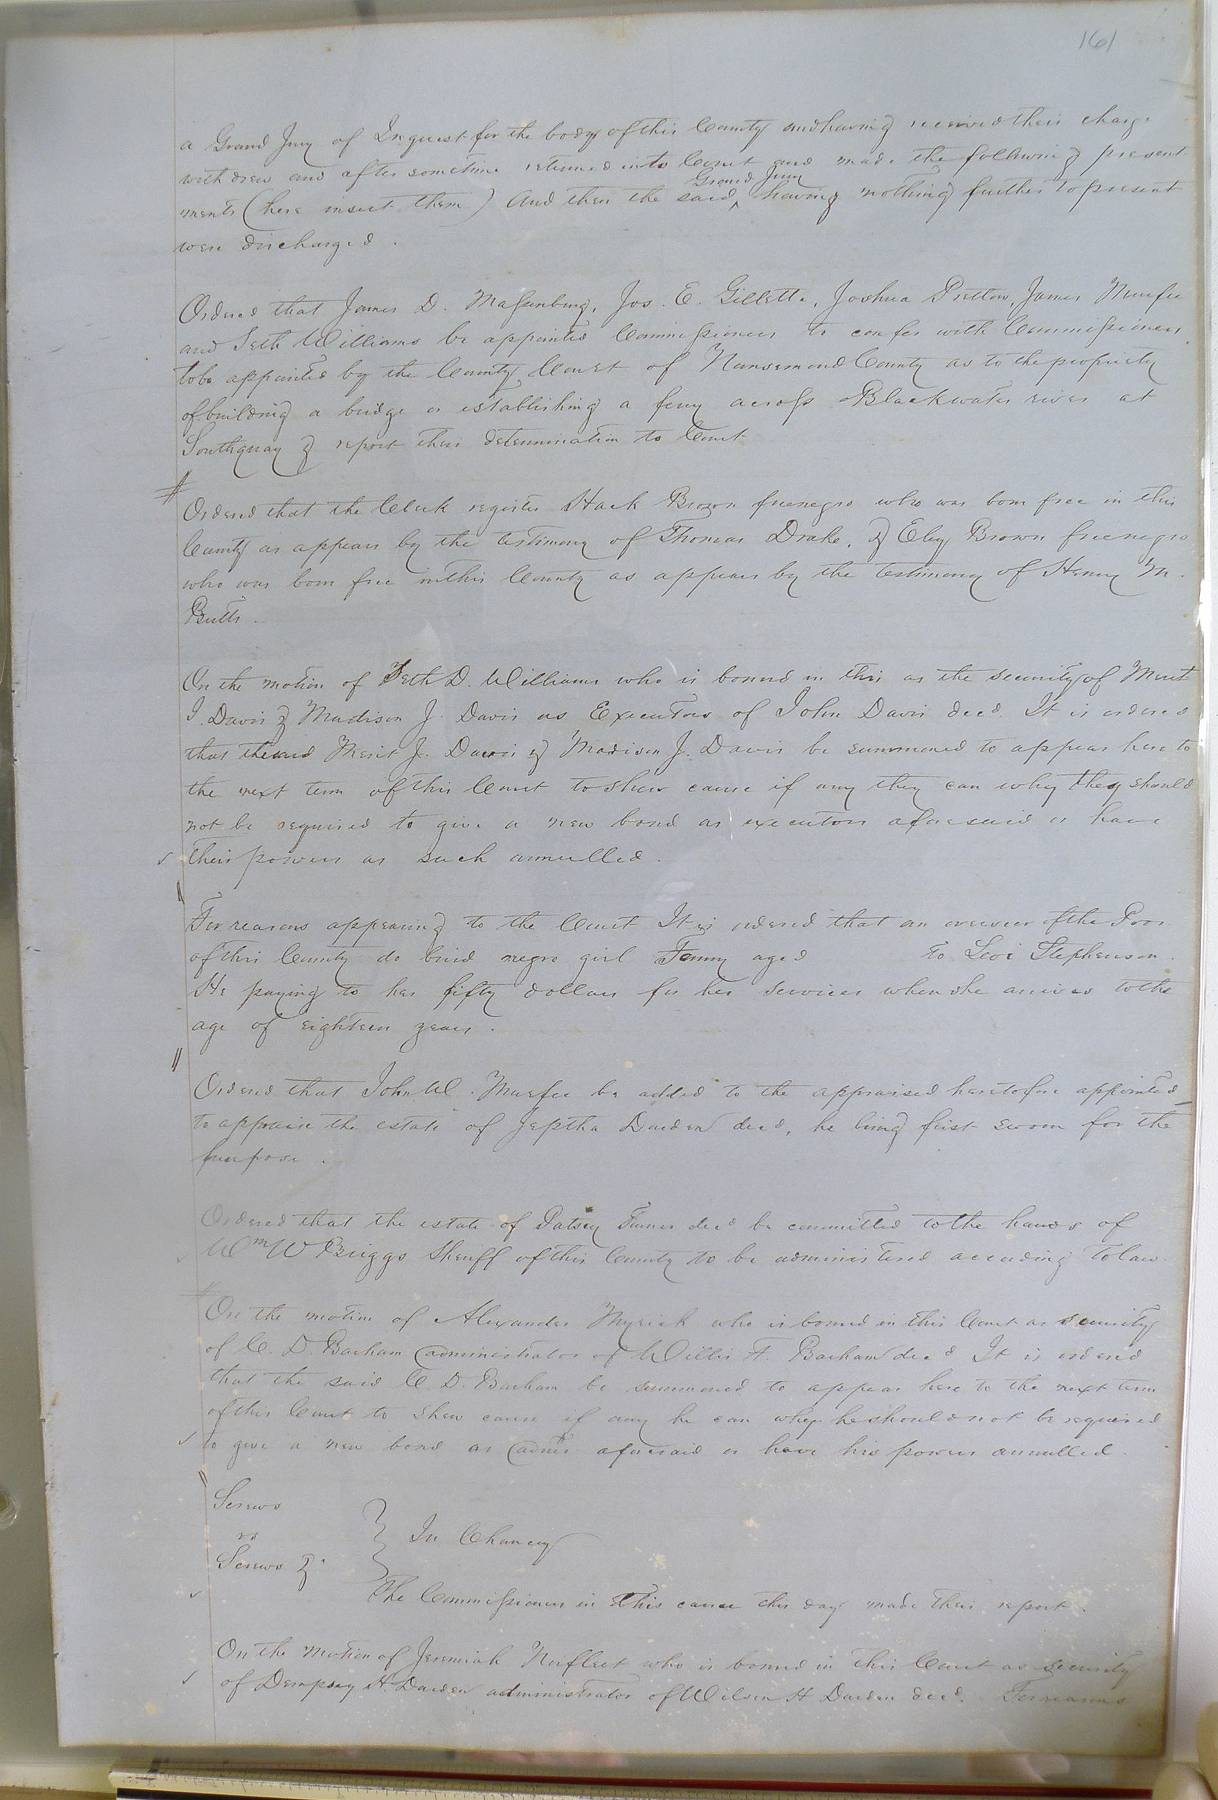 161
a Grand Jury of Inquest for the body of this County and having received their charge
withdrew and after sometime returned into Court and made the following present
ments (here insert them) And then the said Grand Jury having nothing further to present
were discharged.
Ordered that James D. Massenburg, Jos. E. Gillette, Joshua Pretlow, James Murfee
and Seth Williams be appointed Commissioners to confer with Commissioners
to be appointed by the County Court of Nansemond County as to the propriety
of building a bridge or establishing a ferry across Blackwater river at
Southquay & report their determination to Court.
Ordered that the Clerk register Hack Brown free negro who was born free in this
County as appears by the testimony of Thomas Drake, & Eley Brown free negro
who was born free in this County as appears by the testimony of Henry M.
Butts.
On the motion of Seth D. Williams who is bound in this as the security of Merit
J. Davis & Madison J. Davis as Executors of John Davis decd. It is ordered
that the said Merit J. Davis & Madison J. Davis be summoned to appear here to
the next term of this Court to shew cause if any they can why they should
not be required to give a new bond as executors aforesaid or have
their powers as such annulled.
For reasons appearing to the Court It is ordered that an overseer of the Poor
of this County do bind negro girl Fanny aged to Levi Stephenson.
He paying to her fifty dollars for her services when she arrives to the
age of eighteen years.
Ordered that John W. Murfee be added to the appraised heretofore appointed
to appraise the estate of Jeptha Darden decd, he being first sworn for the
purpose.
Ordered that the estate of Patsey Turner decd be committed to the hands of
Wm W Briggs Sheriff of this County to be administered according to law.
On the motion of Alexander Myrick who is bound in this Court as security
of C. D. Barham administrator of Willis F. Barham decd It is ordered
that the said C. D. Barham be summoned to appear here to the next term
of this Court to shew cause if any he can why he should not be required
to give a new bond as admr aforesaid or have his powers annulled.
Screws
vs
Screws &c
In Chancery
The Commissioners in this cause this day made their report.
On the motion of Jeremiah Norfleet who is bound in this Court as security
of Dempsey H. Darden administrator of Wilson H Darden decd. For reasons